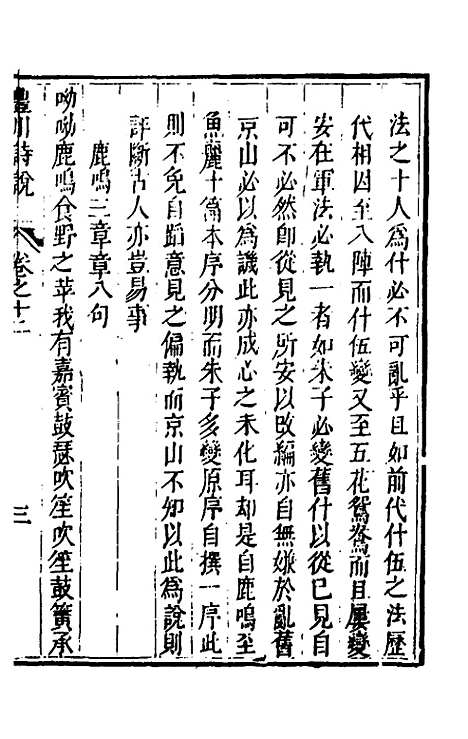 法之十人爲什必不可亂乎且如前代什伍之法歷
代相因至八陣而什伍變又至五花鴛鴦而且屢變
安在軍法必執一者如朱子必變舊什以從已見自
可不必然卽從見之所安以改編亦自無嫌於亂舊
京山必以爲譏此亦成心之未化耳却是自鹿鳴至
魚麗十篇本序分明而朱子多變原序自撰一序此
則不免自蹈意見之偏執而京山不知以此爲說則
評斷古人亦豈易事
鹿鳴三章章八句
呦呦鹿鳴食野之苹我有嘉賓鼓瑟吹笙吹笙鼓簧承
豐川詩說
卷之十二
三